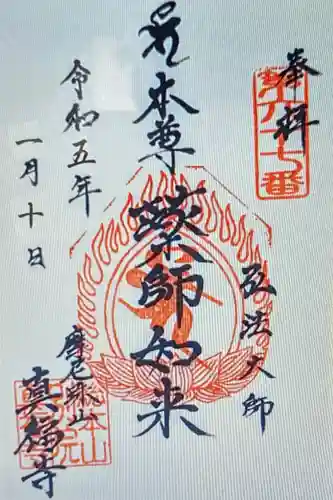 奉拝
第六十七番
弘法大師
本尊
薬師如来
摩尼珠山
真福寺
令和五年
一月十日